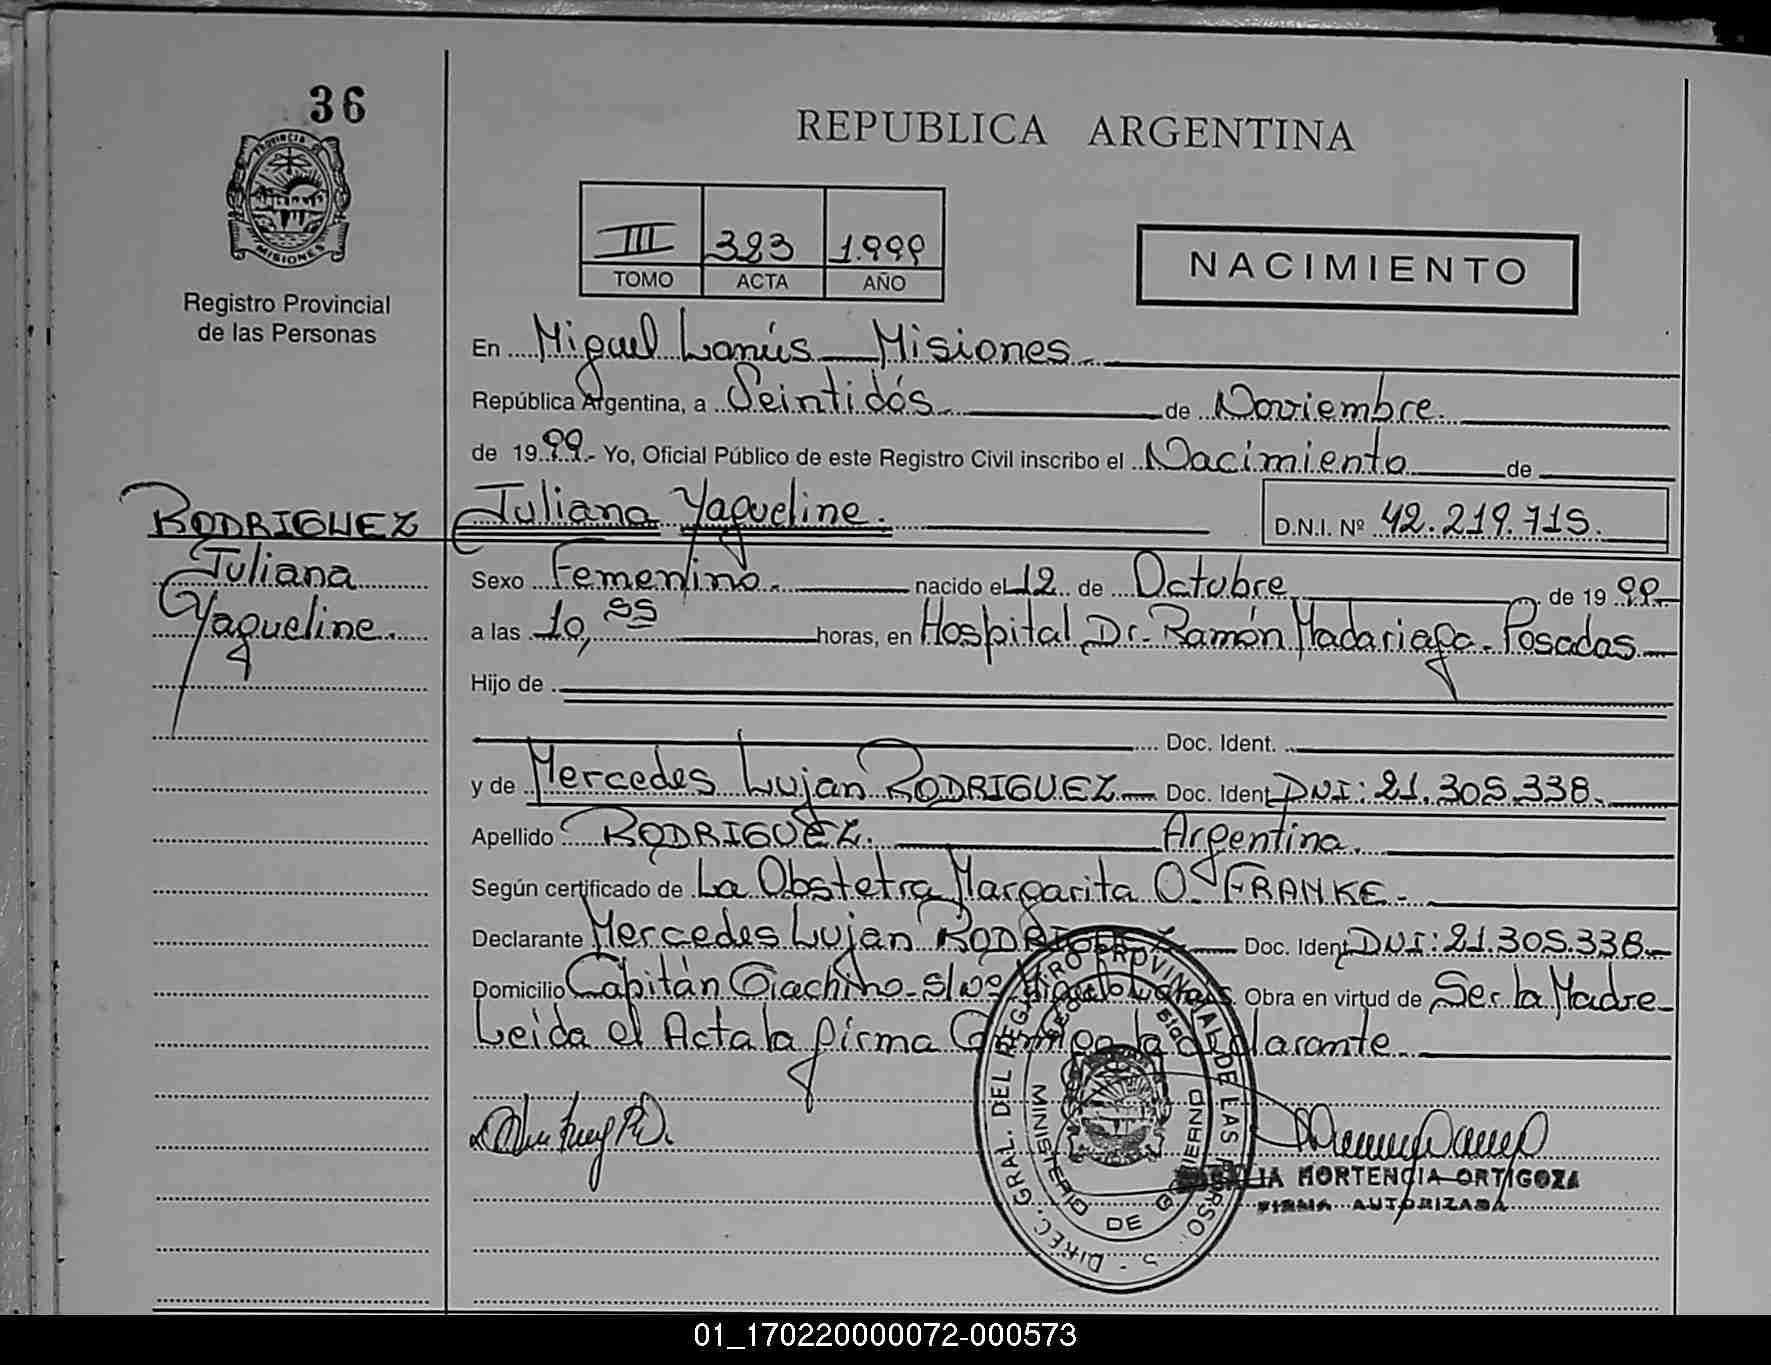 36
PROVINCIA DE
MISIONES
Registro Provincial
de las Personas
REPUBLICA ARGENTINA
III 323 1.999
TOMO ACTA AÑO
NACIMIENTO
En Miguel Lanús Misiones
República Argentina, a Veintidós de Noviembre.
de 1999.- Yo, Oficial Público de este Registro Civil inscribo el Nacimiento de
RODRIGUEZ
Juliana
Yaqueline.
Juliana Yaqueline.
D.N.I. Nº 42.219.715.
Sexo Femenino. nacido el 12 de Octubre de 1999
a las 10,55 horas, en Hospital Dr. Ramón Madariaga. Posadas
Hijo de
Doc. Ident.
y de Mercedes Lujan RODRIGUEZ Doc. Ident DNI: 21.305.338.
Apellido RODRIGUEZ. Argentina.
Según certificado de La Obstetra Margarita O. FRANKE.-
Declarante Mercedes Lujan RODRIGUEZ Doc. Ident DNI: 21.305.338-
Domicilio Capitán Giachino- s/nº Miguel Lanús. Obra en virtud de Ser la Madre-
Leida el Acta la firma Conmigo la declarante
DIREC. GRAL. DEL REGISTRO PROVINCIAL DE LAS PERSONAS
MINISTERIO DE GOBIERNO
HORTENCIA ORTIGOZA
FIRMA AUTORIZADA
01_170220000072-000573